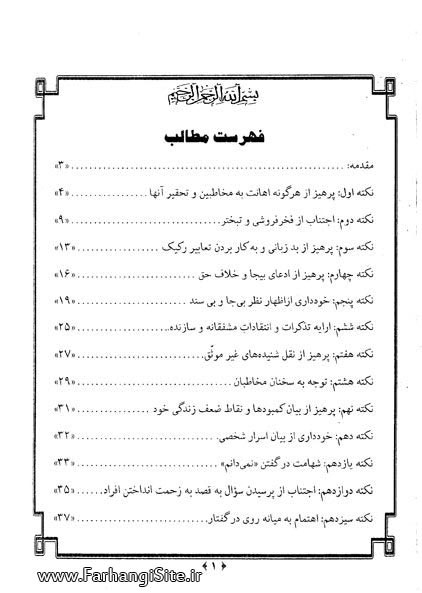 بسم الله الرحمن الرحیم
فهرست مطالب
مقدمه: ........................................................ «۳»
نکته اول: پرهیز از هرگونه اهانت به مخاطبین و تحقیر آنها ................ «۴»
نکته دوم: اجتناب از فخرفروشی و تبختر ............................. «۹»
نکته سوم: پرهیز از بد زبانی و به کار بردن تعابیر رکیک ................. «۱۳»
نکته چهارم: پرهیز از ادعای بیجا و خلاف حق ........................ «۱۶»
نکته پنجم: خودداری ازاظهار نظر بی‌جا و بی سند ....................... «۱۹»
نکته ششم: ارایه تذکرات و انتقادات مشفقانه و سازنده...................... «۲۵»
نکته هفتم: پرهیز از نقل شنیده‌های غیر موثّق............................ «۲۷»
نکته هشتم: توجه به سخنان مخاطبان ................................ «۲۹»
نکته نهم: پرهیز از بیان کمبودها و نقاط ضعف زندگی خود ................ «۳۱»
نکته دهم: خودداری از بیان اسرار شخصی ........................... «۳۲»
نکته یازدهم: شهامت در گفتن «نمی‌دانم» ............................ «۳۳»
نکته دوازدهم: اجتناب از پرسیدن سؤال به قصد به زحمت انداختن افراد...... «۳۵»
نکته سیزدهم: اهتمام به میانه روی در گفتار........................... «۳۷»
﴿۱﴾
www.FarhangiSite.ir